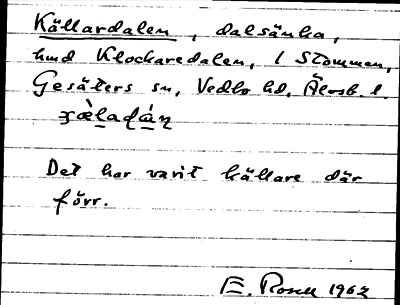 Källardalen, dalsänka,
hmd Klockaredalen, 1 Stommen,
Gesäters sn, Vedbo hd, Älvsb. l.
Det har varit källare där
förr.
E. Rosell 1962